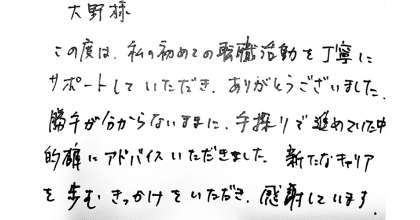 大野様
この度は、私の初めての転職活動を丁寧に
サポートしていただき、ありがとうございました。
勝手が分からないままに、手探りで進めていた中
的確にアドバイスいただきました。新たなキャリア
を歩むきっかけをいただき、感謝しています。